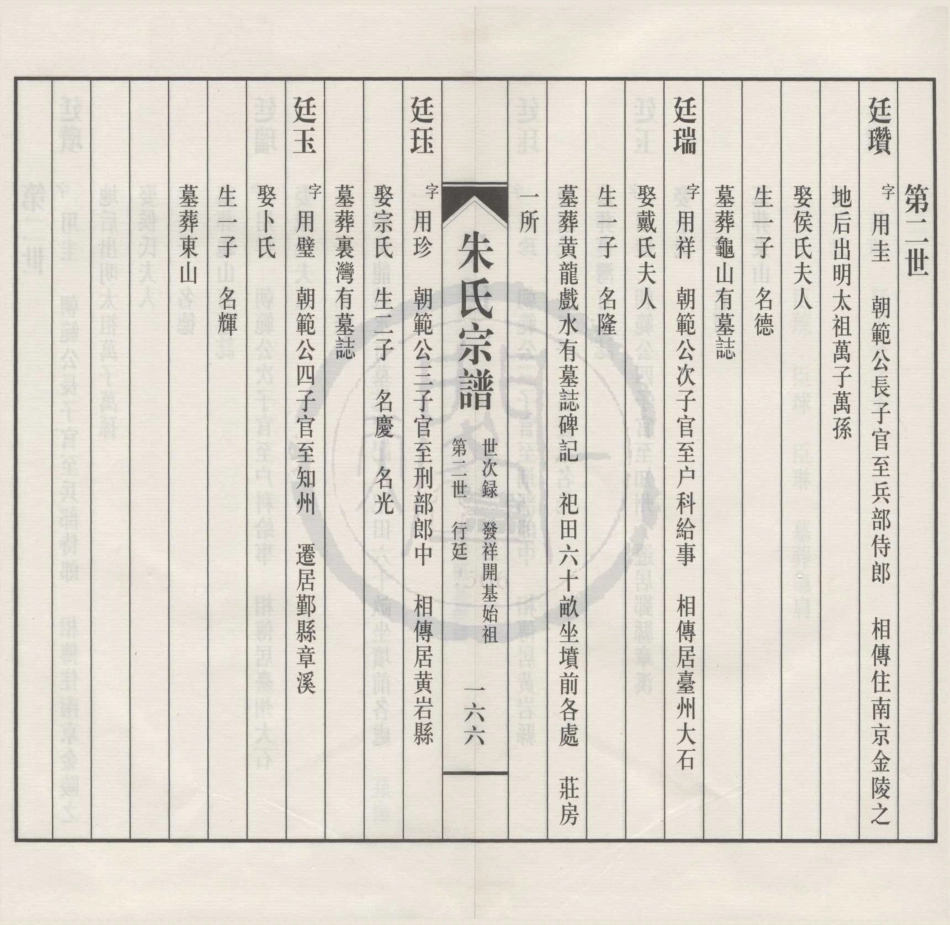 第二世
廷瓚 字 用圭 朝範公長子官至兵部侍郎 相傳住南京金陵之
地后出明太祖萬子萬孫
娶侯氏夫人
生一子 名德
墓葬龜山有墓誌
廷瑞 字 用祥 朝範公次子官至户科給事 相傳居臺州大石
娶戴氏夫人
生一子 名隆
墓葬黄龍戲水有墓誌碑記 祀田六十畝坐墳前各處 莊房
一所
朱氏宗譜
世次録 發祥開基始祖
第二世 行廷
一六六
廷珏 字 用珍 朝範公三子官至刑部郎中 相傳居黄岩縣
娶宗氏 生二子 名慶 名光
墓葬裏灣有墓誌
廷玉 字 用璧 朝範公四子官至知州 遷居鄞縣章溪
娶卜氏
生一子 名輝
墓葬東山